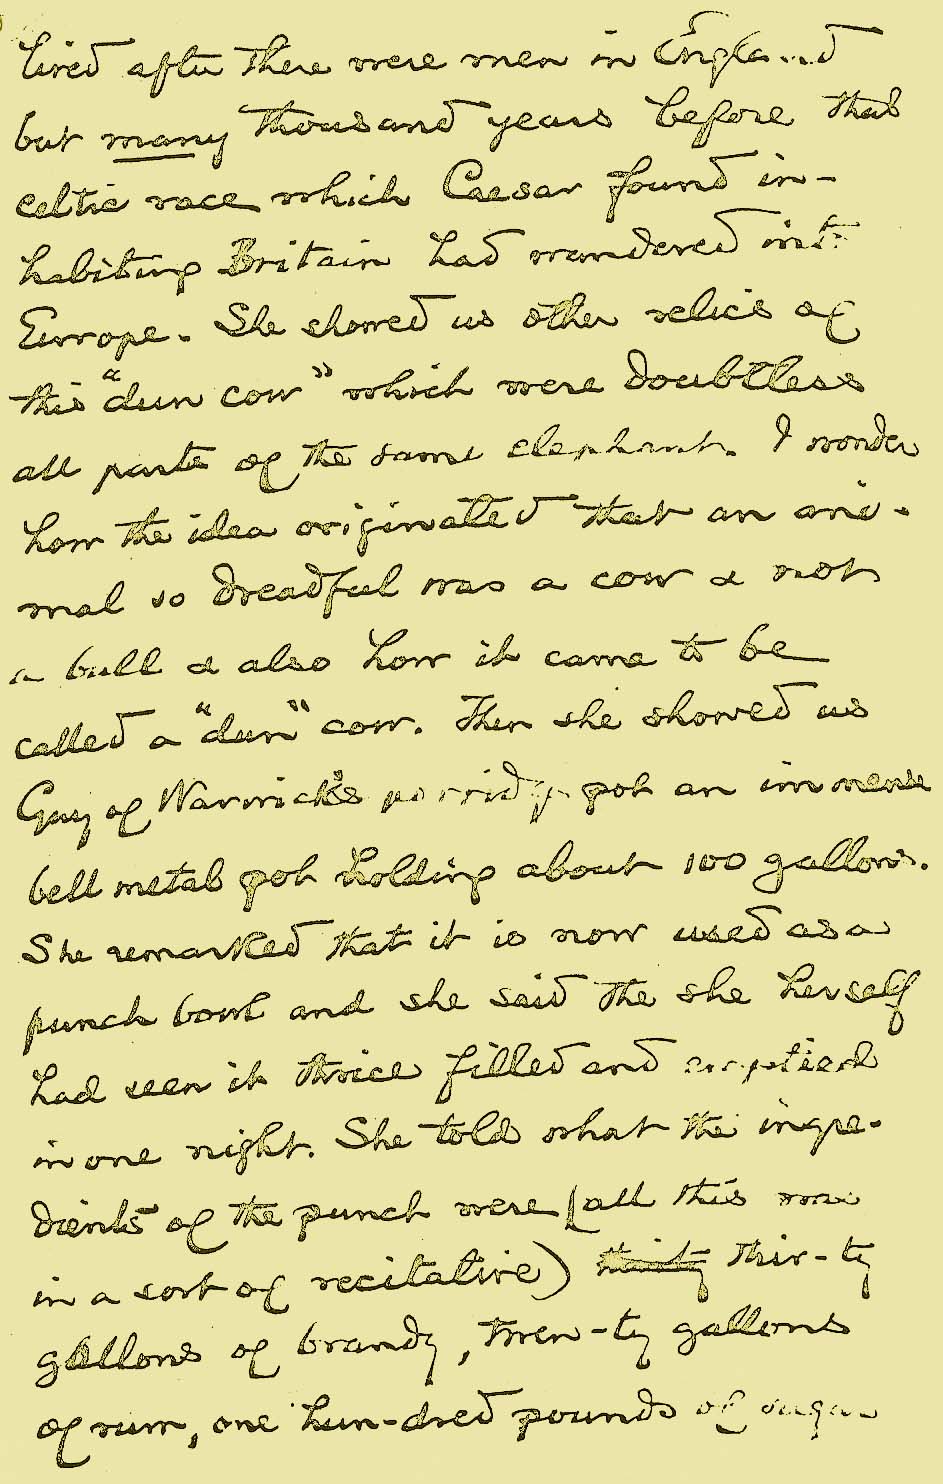 lived after there were men in England
but many thousand years before that
celtic race which Caesar found in-
habiting Britain had wandered into
Europe. She showed us other relics of
this "dun cow" which were doubtless
all parts of the same elephant. I wonder
how the idea originated that an ani-
mal so dreadful was a cow & not
a bull & also how it came to be
called a "dun" cow. Then she showed us
Guy of Warwick's porridge pot an immense
bell metal pot holding about 100 gallons.
She remarked that it is now used as a
punch bowl and she said the she herself
had seen it thrice filled and emptied
in one night. She told what the ingre-
dients of the punch were (all this was
in a sort of recitative) thirty thir-ty
gallons of brandy, twen-ty gallons
of rum, one hun-dred pounds of sugar